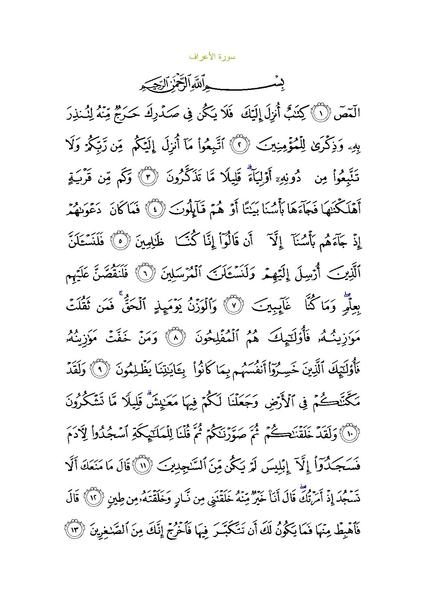 سورة الأعراف
بِسْمِ اللَّهِ الرَّحْمَٰنِ الرَّحِيمِ
الٓمٓصٓ ١ كِتَٰبٌ أُنزِلَ إِلَيْكَ فَلَا يَكُن فِى صَدْرِكَ حَرَجٌ مِّنْهُ لِتُنذِرَ
بِهِۦ وَذِكْرَىٰ لِلْمُؤْمِنِينَ ٢ ٱتَّبِعُوا۟ مَآ أُنزِلَ إِلَيْكُم مِّن رَّبِّكُمْ وَلَا
تَتَّبِعُوا۟ مِن دُونِهِۦٓ أَوْلِيَآءَ ۗ قَلِيلًا مَّا تَذَكَّرُونَ ٣ وَكَم مِّن قَرْيَةٍ
أَهْلَكْنَٰهَا فَجَآءَهَا بَأْسُنَا بَيَٰتًا أَوْ هُمْ قَآئِلُونَ ٤ فَمَا كَانَ دَعْوَىٰهُمْ
إِذْ جَآءَهُم بَأْسُنَآ إِلَّآ أَن قَالُوٓا۟ إِنَّا كُنَّا ظَٰلِمِينَ ٥ فَلَنَسْـَٔلَنَّ
ٱلَّذِينَ أُرْسِلَ إِلَيْهِمْ وَلَنَسْـَٔلَنَّ ٱلْمُرْسَلِينَ ٦ فَلَنَقُصَّنَّ عَلَيْهِم
بِعِلْمٍ ۖ وَمَا كُنَّا غَآئِبِينَ ٧ وَٱلْوَزْنُ يَوْمَئِذٍ ٱلْحَقُّ ۚ فَمَن ثَقُلَتْ
مَوَٰزِينُهُۥ فَأُو۟لَٰٓئِكَ هُمُ ٱلْمُفْلِحُونَ ٨ وَمَنْ خَفَّتْ مَوَٰزِينُهُۥ
فَأُو۟لَٰٓئِكَ ٱلَّذِينَ خَسِرُوٓا۟ أَنفُسَهُم بِمَا كَانُوا۟ بِـَٔايَٰتِنَا يَظْلِمُونَ ٩ وَلَقَدْ
مَكَّنَّٰكُمْ فِى ٱلْأَرْضِ وَجَعَلْنَا لَكُمْ فِيهَا مَعَٰيِشَ ۗ قَلِيلًا مَّا تَشْكُرُونَ
١٠ وَلَقَدْ خَلَقْنَٰكُمْ ثُمَّ صَوَّرْنَٰكُمْ ثُمَّ قُلْنَا لِلْمَلَٰٓئِكَةِ ٱسْجُدُوا۟ لِـَٔادَمَ
فَسَجَدُوٓا۟ إِلَّآ إِبْلِيسَ لَمْ يَكُن مِّنَ ٱلسَّٰجِدِينَ ١١ قَالَ مَا مَنَعَكَ أَلَّا
تَسْجُدَ إِذْ أَمَرْتُكَ ۖ قَالَ أَنَا۠ خَيْرٌ مِّنْهُ خَلَقْتَنِى مِن نَّارٍ وَخَلَقْتَهُۥ مِن طِينٍ ١٢ قَالَ
فَٱهْبِطْ مِنْهَا فَمَا يَكُونُ لَكَ أَن تَتَكَبَّرَ فِيهَا فَٱخْرُجْ إِنَّكَ مِنَ ٱلصَّٰغِرِينَ ١٣